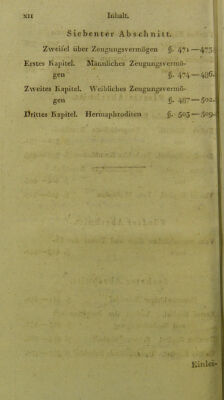 XII Inhalt.
Siebenter Abschnitt.
Zweifel über Zeugungsvermögen §. 471—473.
Erstes Kapitel. Männliches Zeugungsvermö-
gen §. 474—486.
Zweites Kapitel. Weibliches Zeugungsvermö-
gen §. 487—502.
Drittes Kapitel. Hermaphroditen §. 503—509.
Einlei-